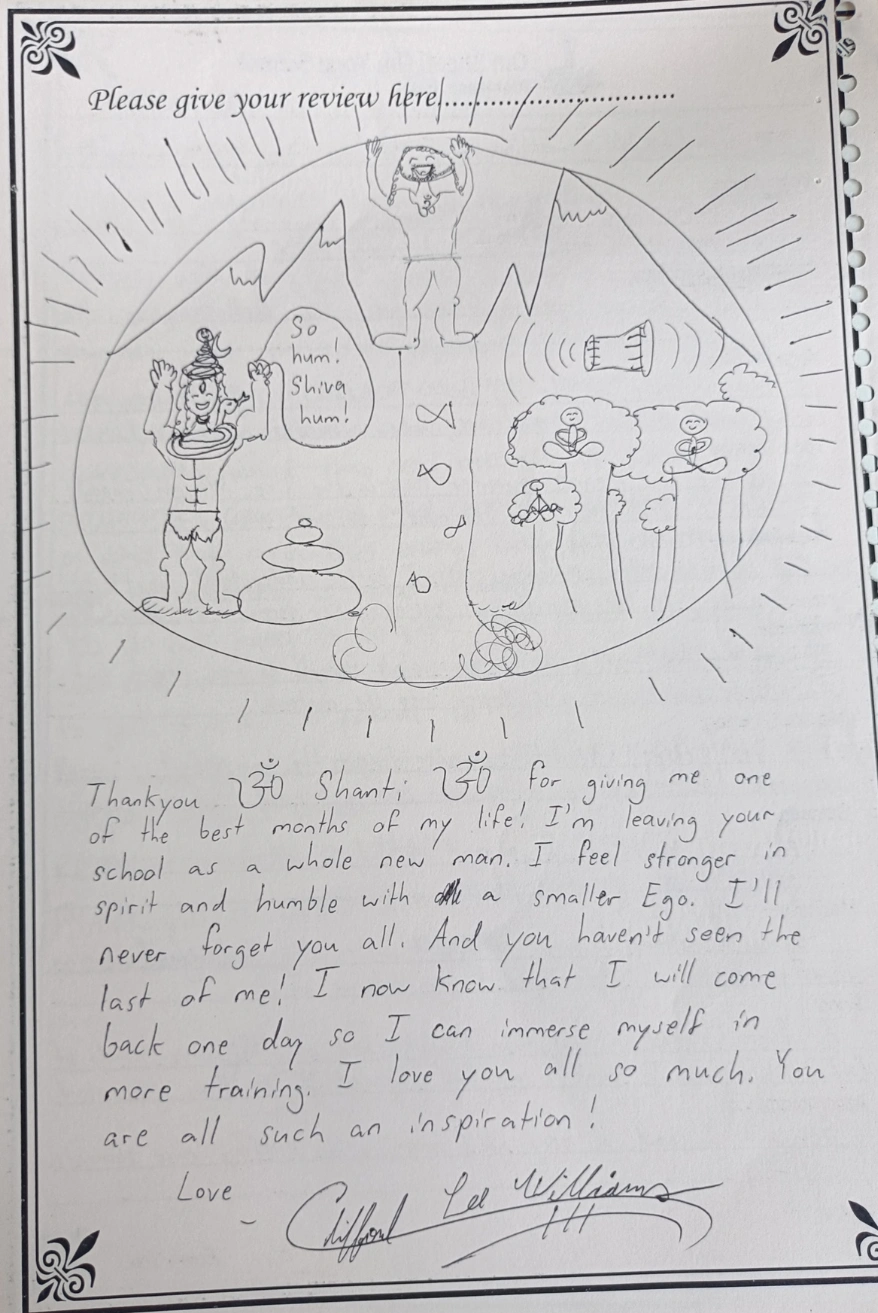 Please give your review here......................................
So
hum!
Shiva
hum!
Thankyou ॐ Shanti ॐ for giving me one
of the best months of my life! I'm leaving your
school as a whole new man. I feel stronger in
spirit and humble with a smaller Ego. I'll
never forget you all. And you haven't seen the
last of me! I now know that I will come
back one day so I can immerse myself in
more training. I love you all so much. You
are all such an inspiration!
Love
- Clifford Lee Williams III